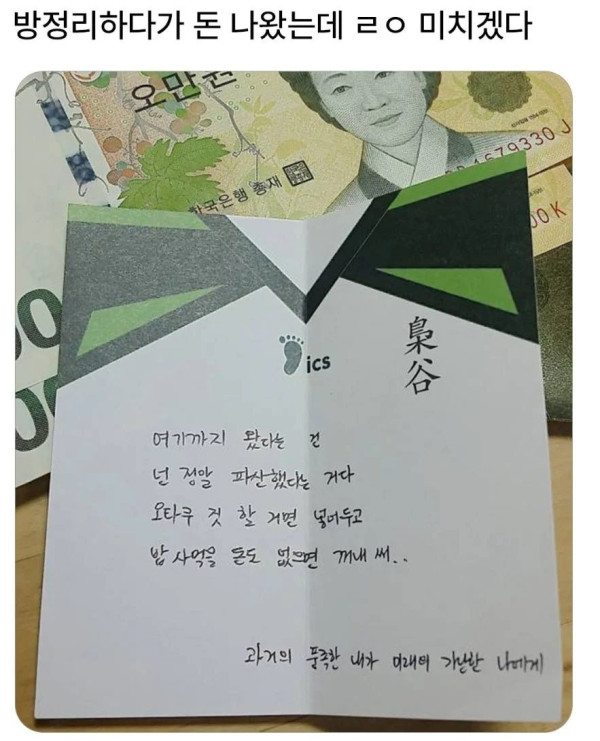 방정리하다가 돈 나왔는데 ㄹㅇ 미치겠다
오만원
한국은행 총재
1679330 J
00 K
ics
梟谷
여기까지 왔다는 건
넌 정말 파산했다는 거다
오타쿠 짓 할 거면 넣어두고
밥 사먹을 돈도 없으면 꺼내 써..
과거의 풍족한 내가 미래의 가난한 나에게